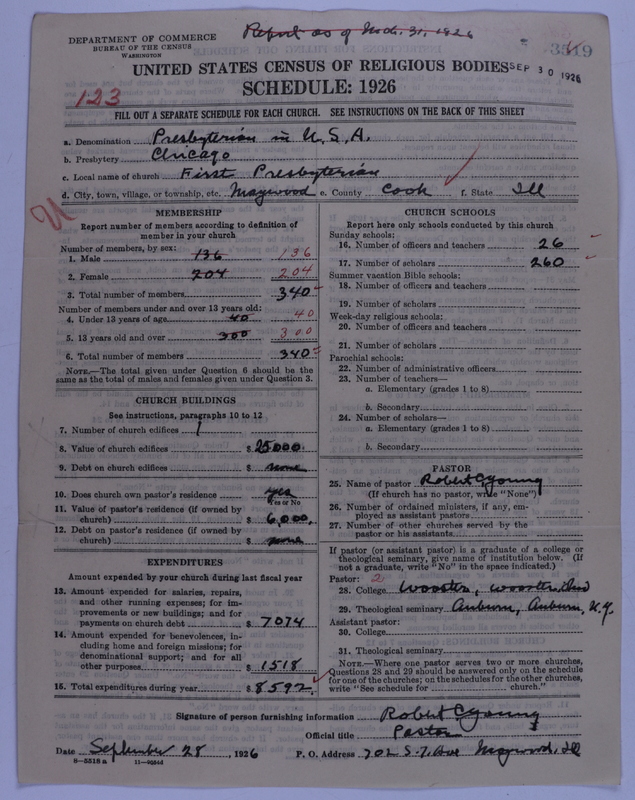 Report as of Mch. 31, 1926
DEPARTMENT OF COMMERCE
BUREAU OF THE CENSUS
WASHINGTON
3519
SEP 30 1926
UNITED STATES CENSUS OF RELIGIOUS BODIES
SCHEDULE: 1926
123
FILL OUT A SEPARATE SCHEDULE FOR EACH CHURCH. SEE INSTRUCTIONS ON THE BACK OF THIS SHEET
a. Denomination Presbyterian in U.S.A.
b. Presbytery Chicago
c. Local name of church First Presbyterian
d. City, town, village, or township, etc. Maywood e. County Cook f. State Ill
U
MEMBERSHIP
Report number of members according to definition of
member in your church
Number of members, by sex:
1. Male 136 136
2. Female 204 204
3. Total number of members 340
Number of members under and over 13 years old:
4. Under 13 years of age 40 40
5. 13 years old and over 300 300
6. Total number of members 340
NOTE.—The total given under Question 6 should be the
same as the total of males and females given under Question 3.
CHURCH BUILDINGS
See instructions, paragraphs 10 to 12
7. Number of church edifices 1
8. Value of church edifices $ 25000.
9. Debt on church edifices $ none
10. Does church own pastor's residence yes
Yes or No
11. Value of pastor's residence (if owned by
church) $ 6,000.
12. Debt on pastor's residence (if owned by
church) $ none
EXPENDITURES
Amount expended by your church during last fiscal year
13. Amount expended for salaries, repairs,
and other running expenses; for im-
provements or new buildings; and for
payments on church debt $ 7074
14. Amount expended for benevolences, in-
cluding home and foreign missions; for
denominational support; and for all
other purposes $ 1518
15. Total expenditures during year $ 8592.
CHURCH SCHOOLS
Report here only schools conducted by this church
Sunday schools:
16. Number of officers and teachers 26
17. Number of scholars 260
Summer vacation Bible schools:
18. Number of officers and teachers
19. Number of scholars
Week-day religious schools:
20. Number of officers and teachers
21. Number of scholars
Parochial schools:
22. Number of administrative officers
23. Number of teachers—
a. Elementary (grades 1 to 8)
b. Secondary
24. Number of scholars—
a. Elementary (grades 1 to 8)
b. Secondary
PASTOR
25. Name of pastor Robert C Young
(If church has no pastor, write "None")
26. Number of ordained ministers, if any, em-
ployed as assistant pastors
27. Number of other churches served by the
pastor or his assistants
If pastor (or assistant pastor) is a graduate of a college or
theological seminary, give name of institution below. (If
not a graduate, write "No" in the space indicated.)
Pastor: 2
28. College Wooster, Wooster, Ohio
29. Theological seminary Auburn, Auburn, N.Y.
Assistant pastor:
30. College
31. Theological seminary
NOTE.—Where one pastor serves two or more churches,
Questions 28 and 29 should be answered only on the schedule
for one of the churches; on the schedules for the other churches,
write "See schedule for church."
Signature of person furnishing information Robert C Young
Official title Pastor
Date September 28, 1926 P. O. Address 702 S. 7. Ave Maywood, Ill
8—5318 a